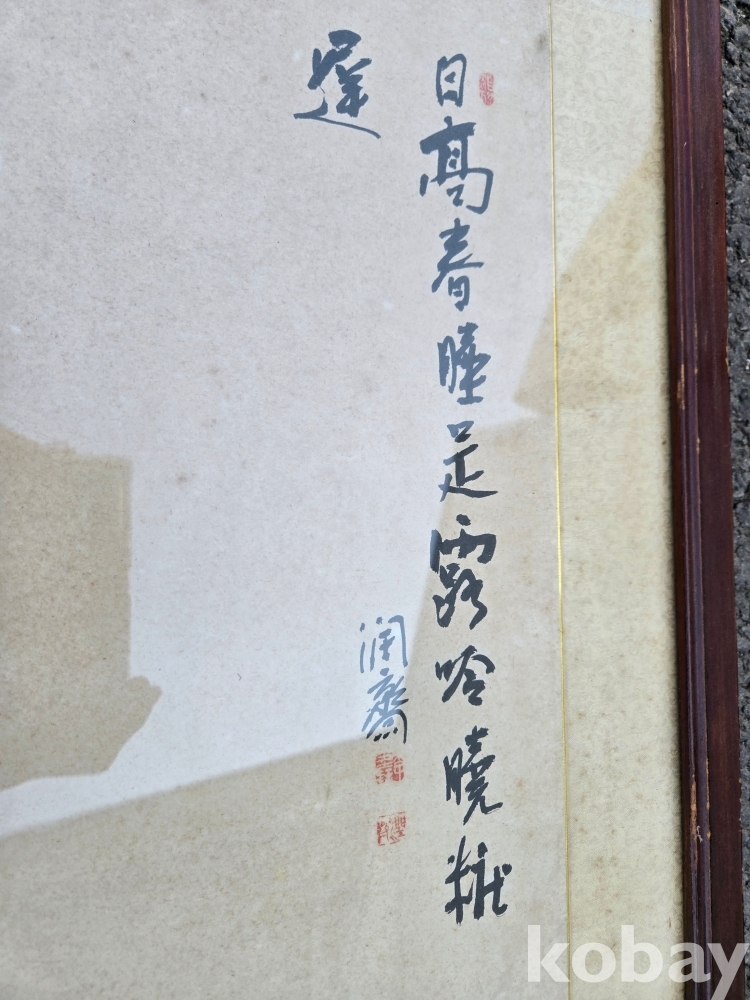 日高春睡足露冷曉粧
遲
润齋
kobay